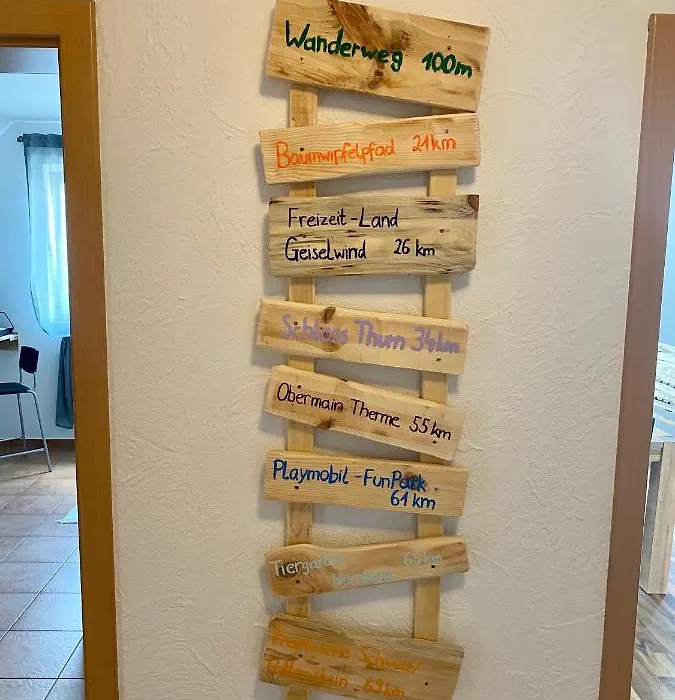 Wanderweg 100m
Baumwipfelpfad 21km
Freizeit-Land
Geiselwind 26 km
Schloss Thurn 34km
Obermain Therme 55 km
Playmobil-FunPark
61 km
Tiergarten 65km
Nürnberg
Fränkische Schweiz/
Pottenstein 69km